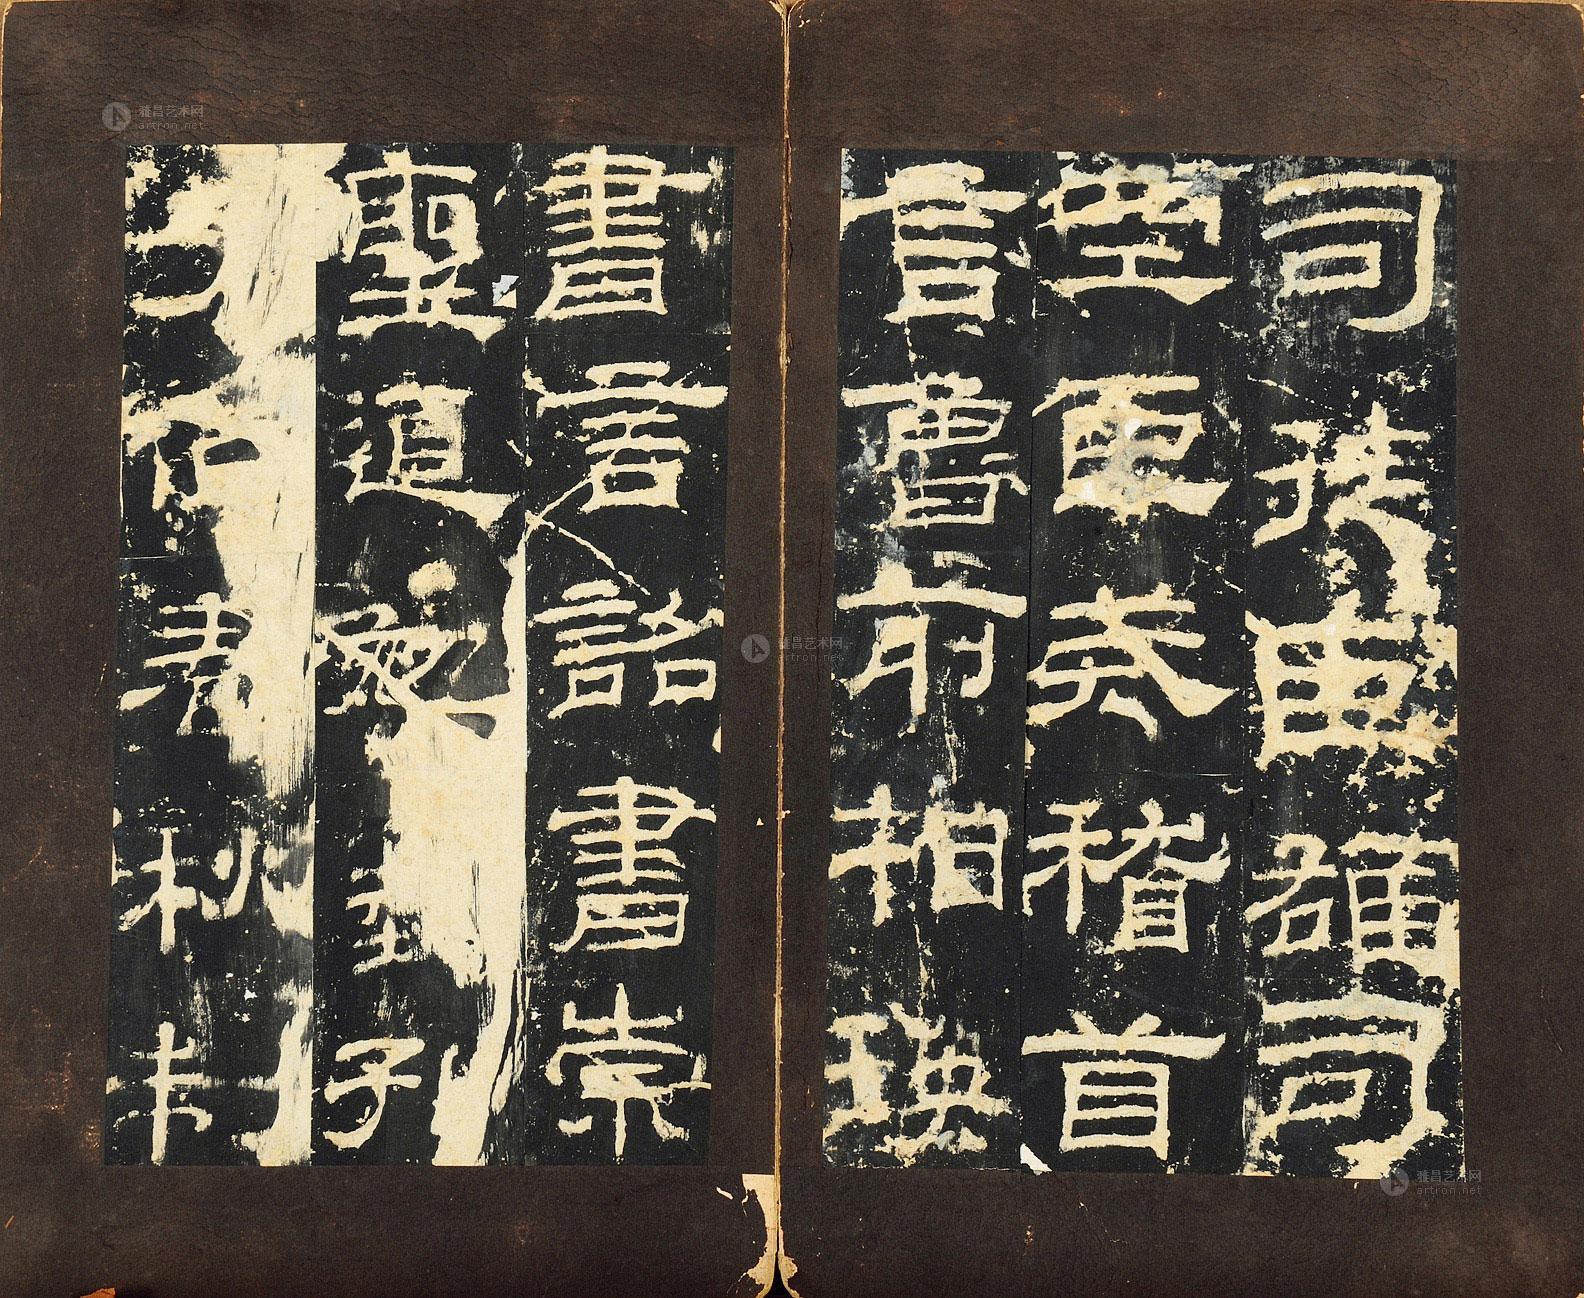 司徒臣雄司
空臣戒稽首
言魯前相瑛
書言詔書崇
聖道勉藝孔子
作春秋制
雅昌艺术网
artron.net
雅昌艺术网
artron.net
雅昌艺术网
artron.net